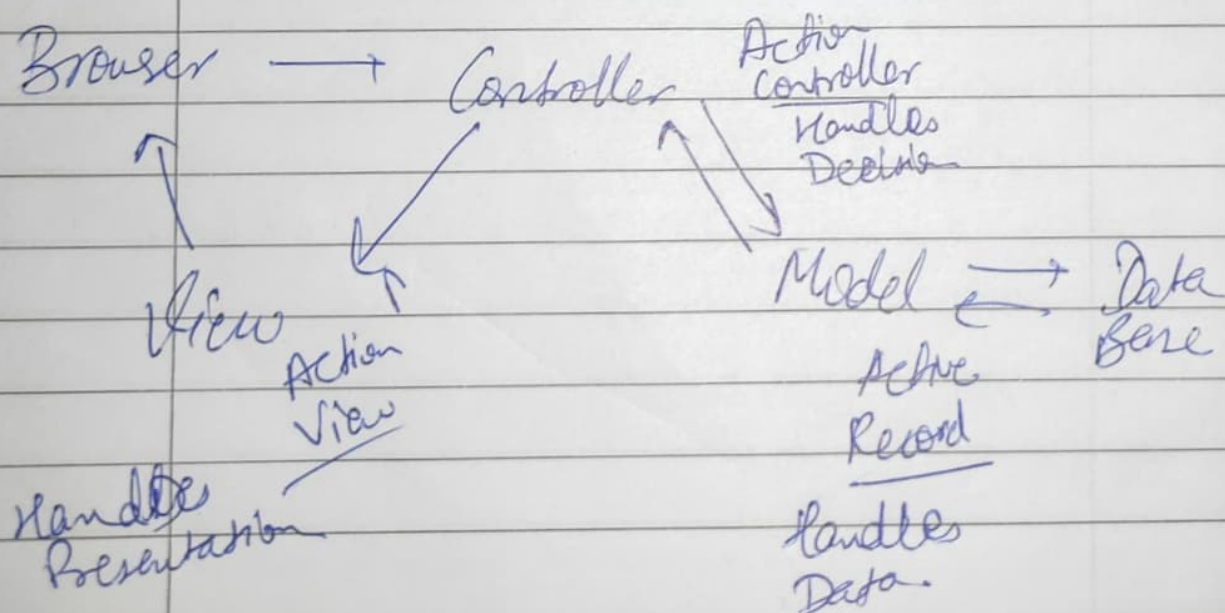 Browser
Controller
Action
Controller
Handles
Decision
View
Action
View
Handles
Presentation
Model
Active
Record
Handles
Data.
Data
Base